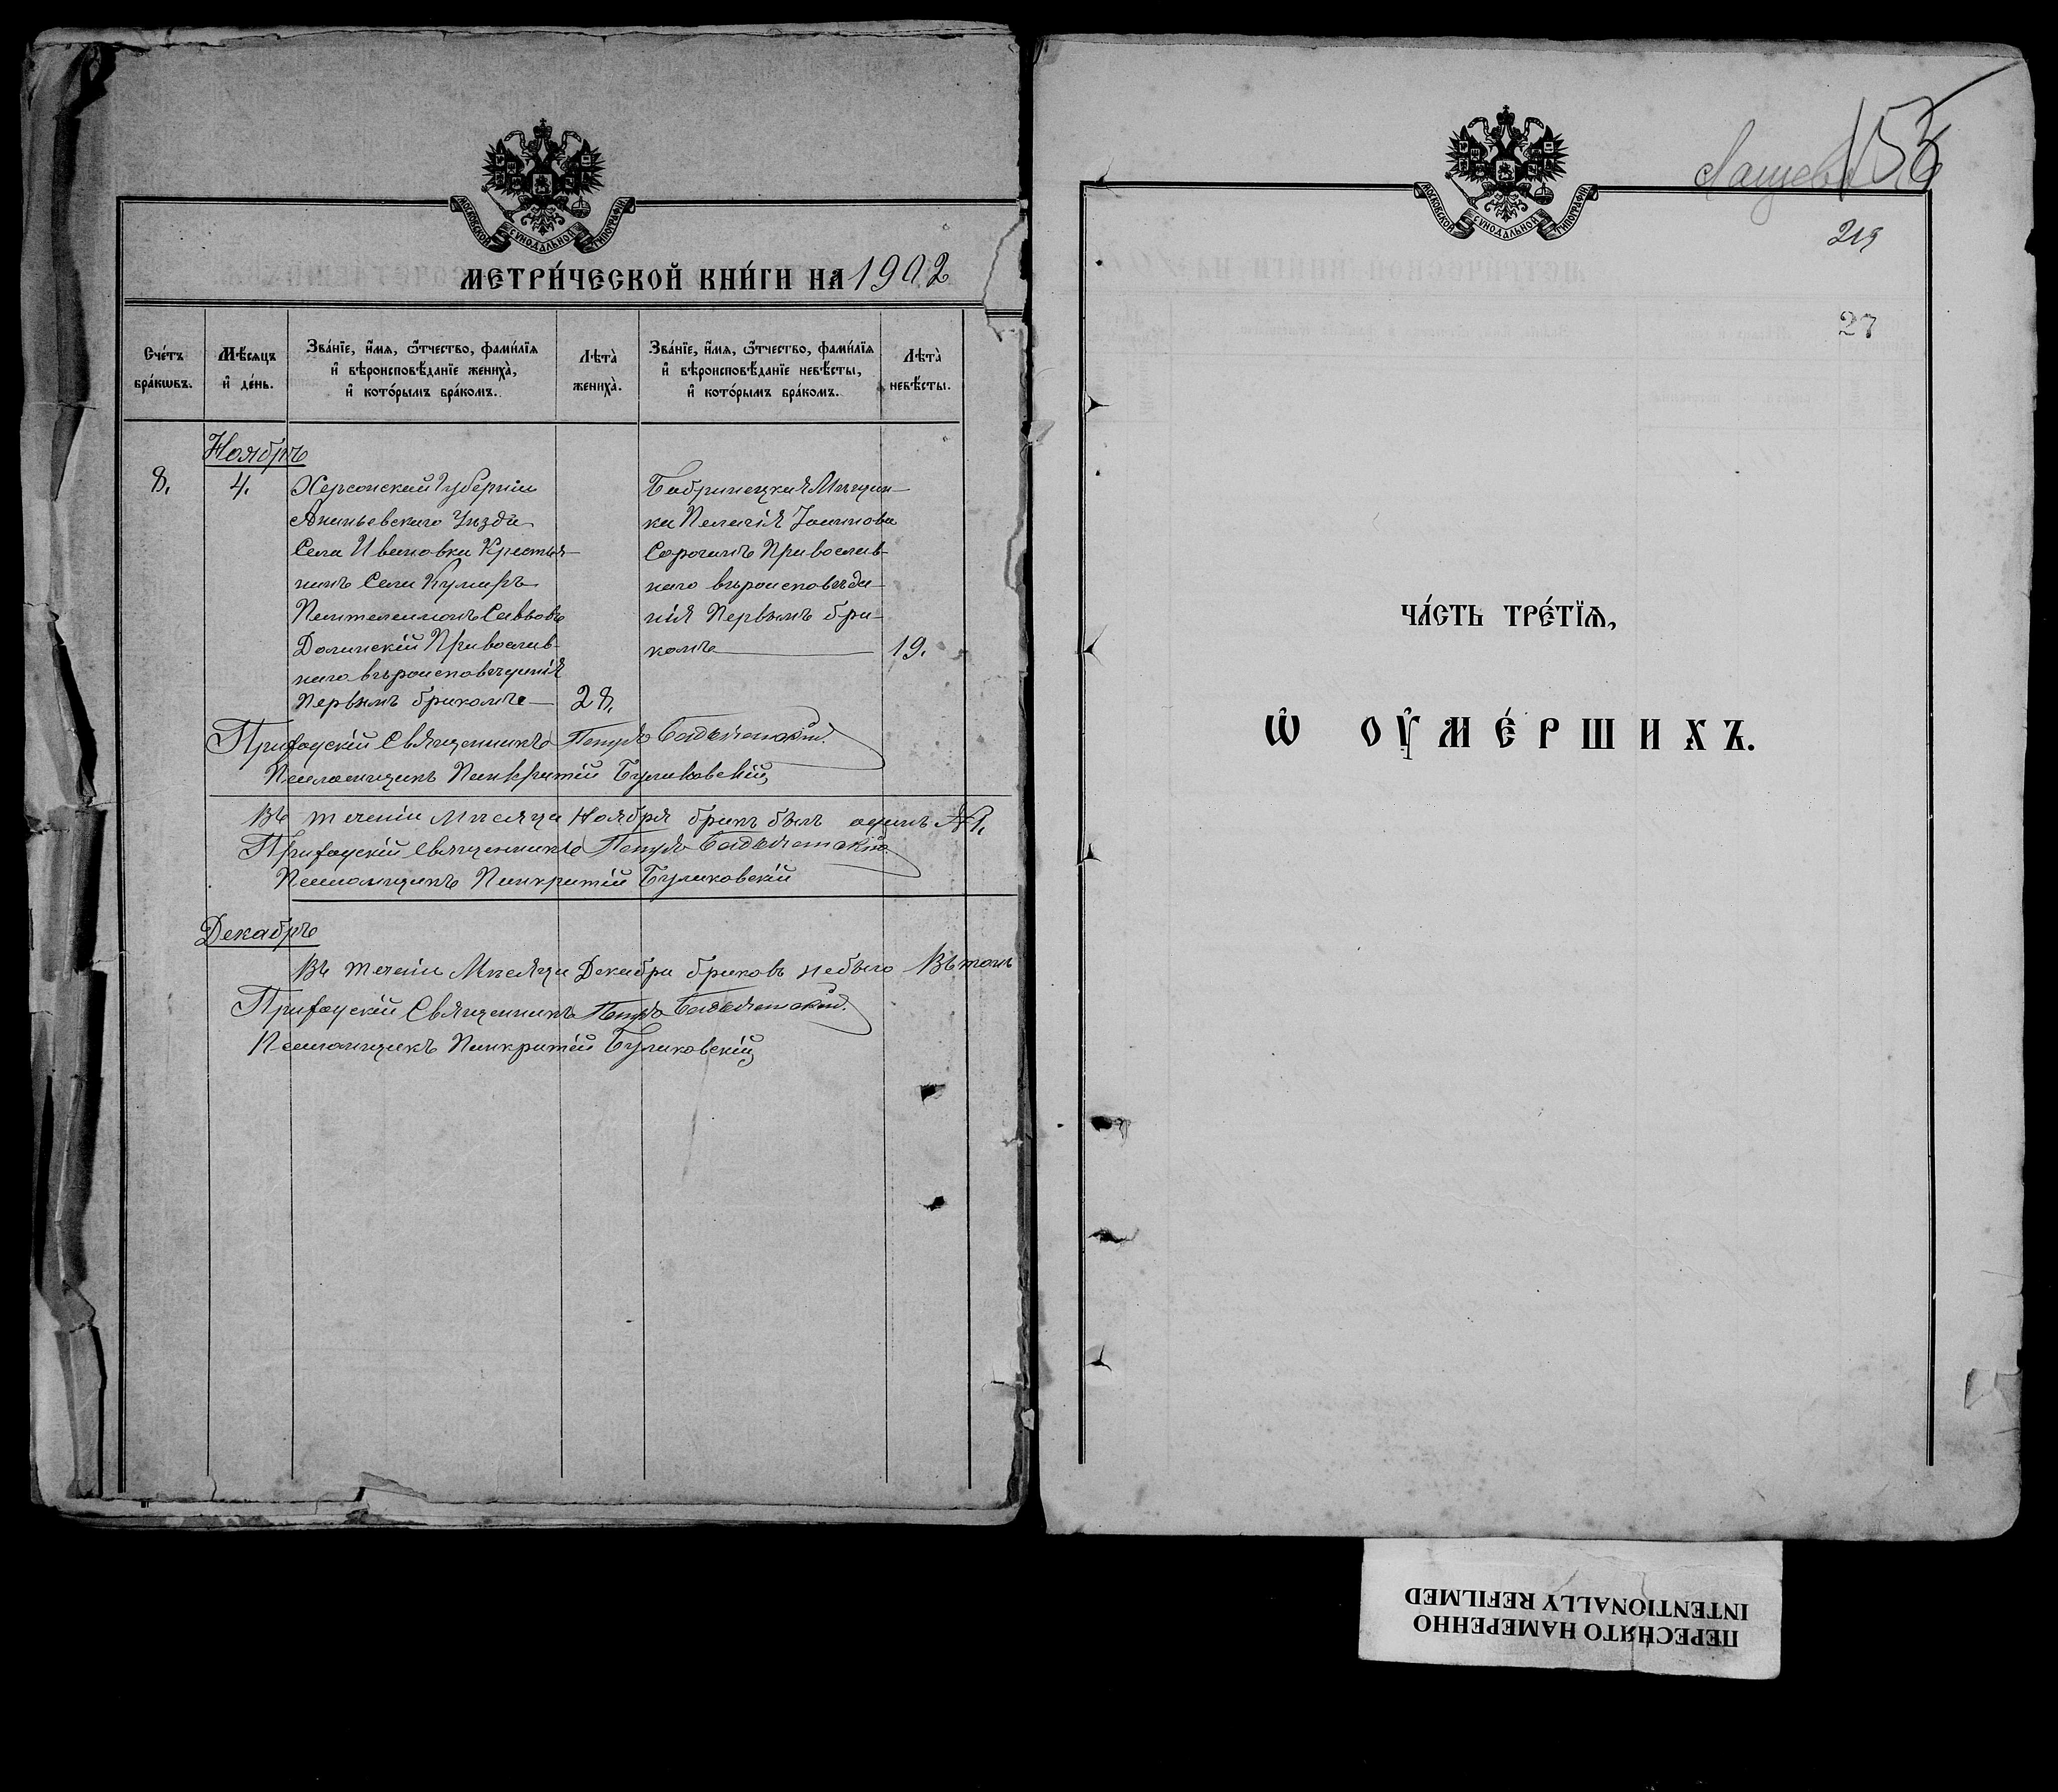 МОСКОВСКОЙ СУНОДАЛЬНОЙ ТИПОГРАФІИ
МЕТРИ́ЧЕСКОЙ КНИ́ГИ НА 1902
Сче́тъ бра́кωвъ.
Мѣ́сяцъ и҆ де́нь.
Зва́нїе, и҆́мѧ, ѻ҆́тчество, фами́лїѧ и҆ вѣроисповѣ́данїе жениха̀, и҆ кото́рымъ бра́комъ.
Лѣта̀ жениха̀.
Зва́нїе, и҆́мѧ, ѻ҆́тчество, фами́лїѧ и҆ вѣроисповѣ́данїе невѣ́сты, и҆ кото́рымъ бра́комъ.
Лѣта̀ невѣ́сты.
Ноябрь
8.
4.
Херсонской Губерніи
Ананьевскаго Уѣзда
Села Ивановки Крестья-
нинъ Села Кумаръ
Пантелеимонъ Саввовъ
Долинскій Православ-
наго вѣроисповѣданія
Первымъ бракомъ—
28.
Бобринецкая Мѣщан-
ка Пелагія Іоаннова
Сорочанъ Православ-
наго вѣроисповѣда-
нія Первымъ бра-
комъ
19.
Приходскій Священникъ Петръ
Псаломщикъ Панкратій Буликовскій
Въ теченіи Мѣсяца Ноября бракъ былъ одинъ №1.
Приходскій Священникъ Петръ
Псаломщикъ Панкратій Буликовскій
Декабрь
Въ теченіи Мѣсяца Декабря браковъ небыло Въ томъ
Приходскій Священникъ Петръ
Псаломщикъ Панкратій Буликовскій
МОСКОВСКОЙ СУНОДАЛЬНОЙ ТИПОГРАФІИ
219
27
ЧА́СТЬ ТРЕ́ТЇѦ,
Ѡ҆ ОУ҆МЕ́РШИХЪ.
ПЕРЕСНЯТО НАМЕРЕННО
INTENTIONALLY REFILMED